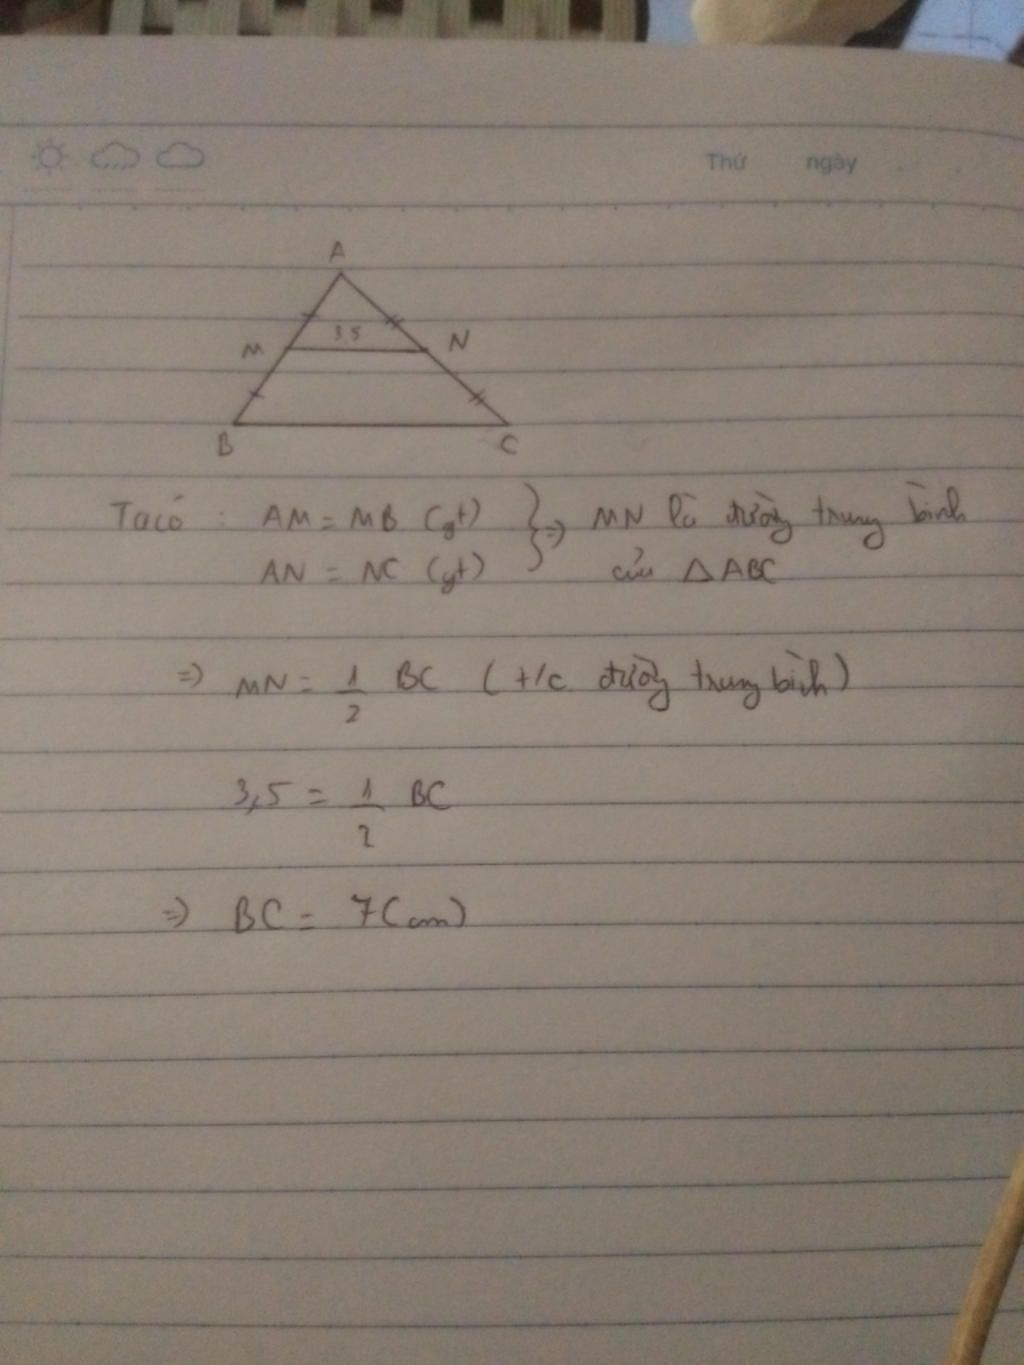 Thứ ngày
A
3,5
M N
B C
Ta có : AM = MB (gt) } => MN là đường trung bình
AN = NC (gt) của △ ABC
=> MN = 1/2 BC ( t/c đường trung bình )
3,5 = 1/2 BC
=> BC = 7 (cm)